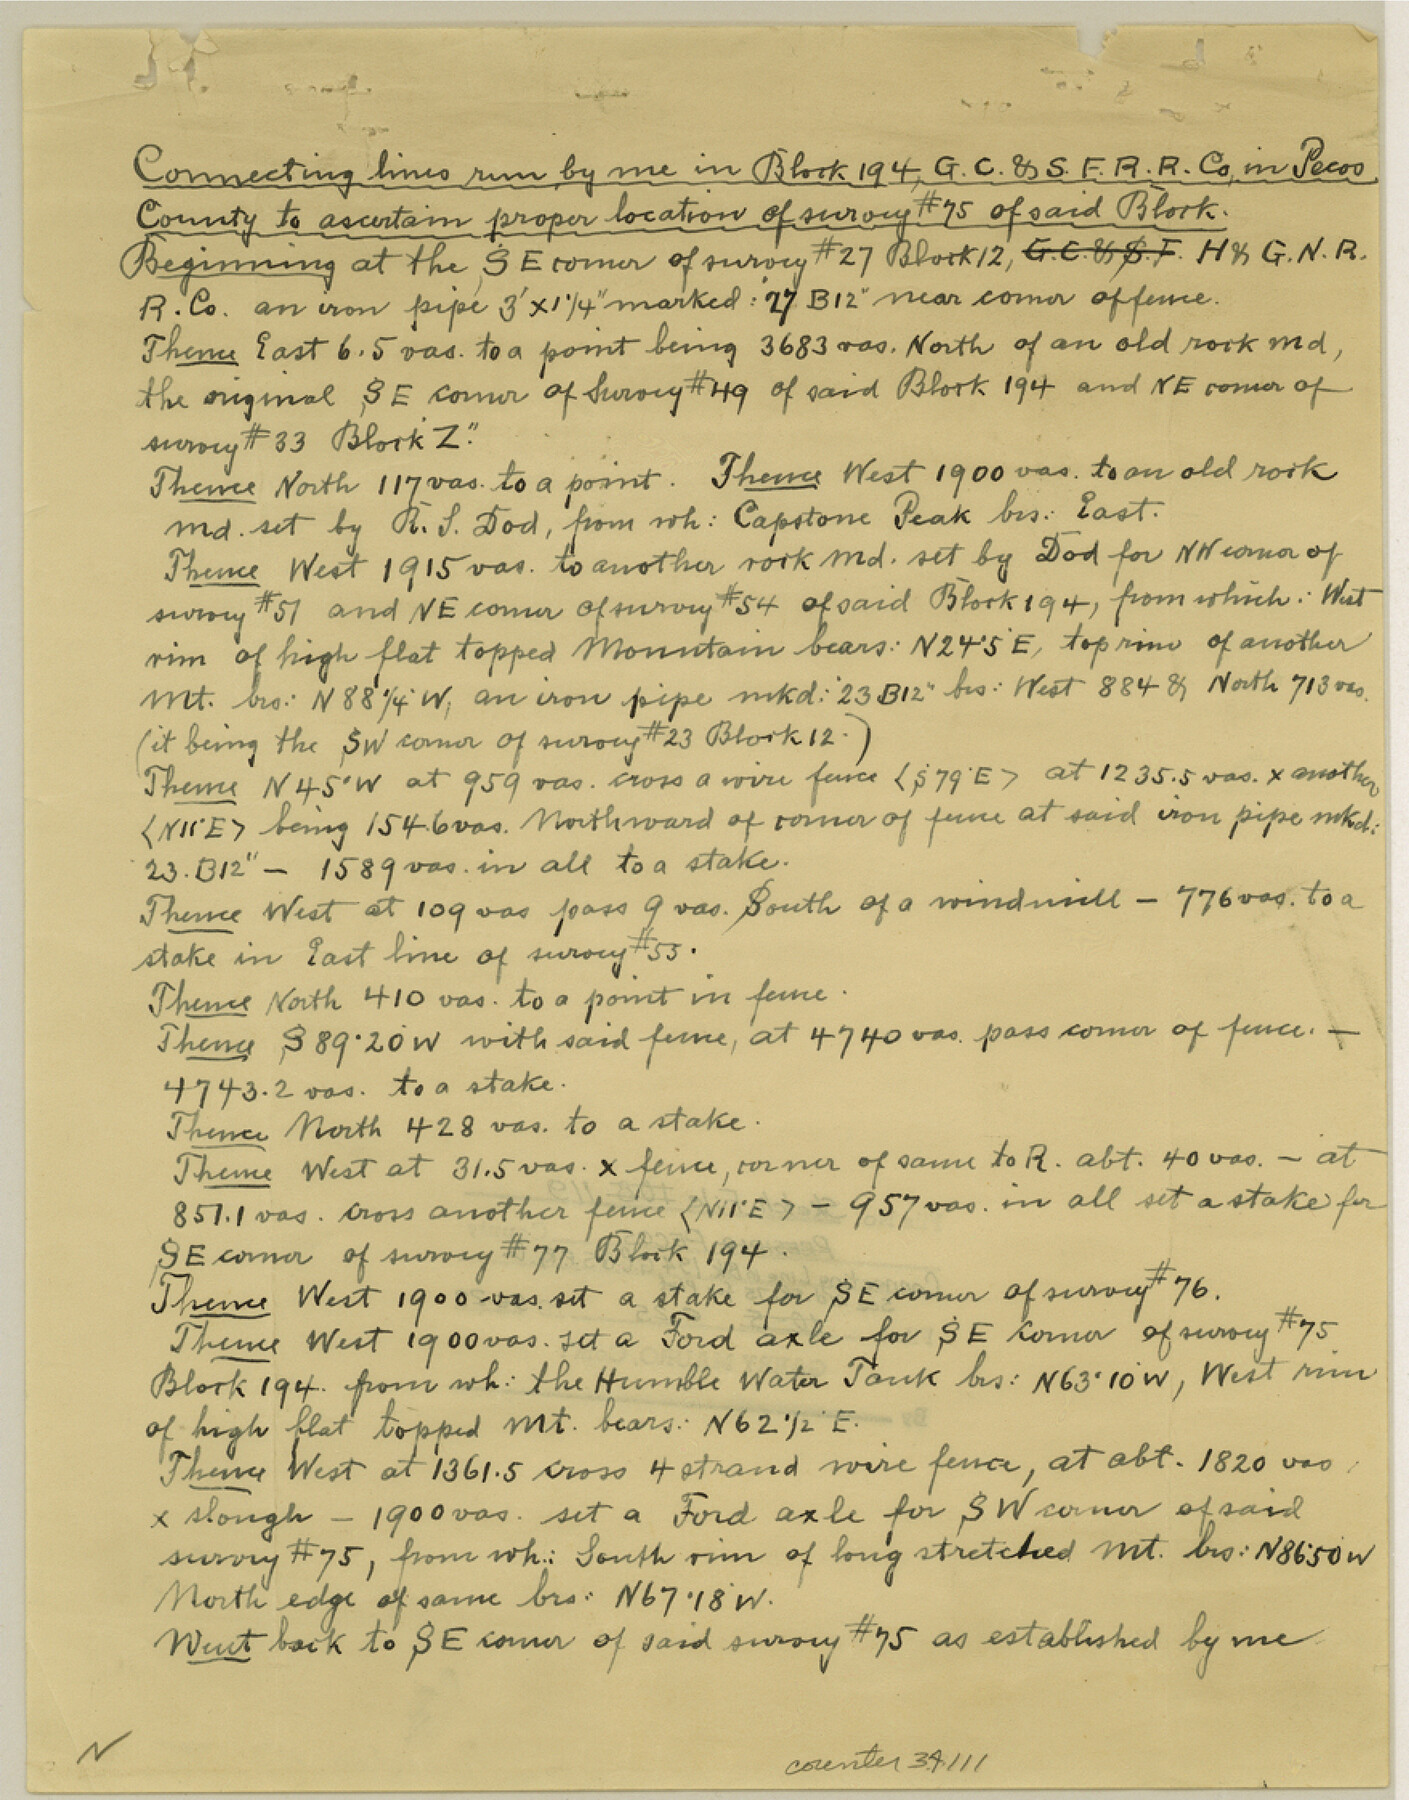 Connecting lines run by me in Block 194, G. C. & S. F. R. R. Co, in Pecos
County to ascertain proper location of survey #75 of said Block.
Beginning at the SE corner of survey #27 Block 12, G.C. & S.F. H & G. N. R.
R. Co. an iron pipe 3' x 1 1/4" marked: "27 B12" near corner of fence.
Thence East 6.5 vas. to a point being 3683 vas. North of an old rock md,
the original SE corner of Survey #49 of said Block 194 and NE corner of
survey #33 Block "Z".
Thence North 117 vas. to a point. Thence West 1900 vas. to an old rock
md. set by R. S. Dod, from wh: Capstone Peak brs: East.
Thence West 1915 vas. to another rock md. set by Dod for NW corner of
survey #51 and NE corner of survey #54 of said Block 194, from which: West
rim of high flat topped Mountain bears: N24°5' E, top rim of another
Mt. brs: N 88 1/4° W, an iron pipe mkd: "23 B12" brs: West 884 & North 713 vas.
(it being the SW corner of survey #23 Block 12.)
Thence N45°W at 959 vas. cross a wire fence <S79°E> at 1235.5 vas. x another
<N11°E> being 154.6 vas. Northward of corner of fence at said iron pipe mkd:
23. B12" – 1589 vas. in all to a stake.
Thence West at 109 vas pass 9 vas. South of a windmill – 776 vas. to a
stake in East line of survey #55.
Thence North 410 vas. to a point in fence.
Thence S89°20'W with said fence, at 4740 vas. pass corner of fence. –
4743.2 vas. to a stake.
Thence North 428 vas. to a stake.
Thence West at 31.5 vas. x fence, corner of same to R. abt. 40 vas. – at
851.1 vas. cross another fence <N11°E> – 957 vas. in all set a stake for
SE corner of survey #77 Block 194.
Thence West 1900 vas. set a stake for SE corner of survey #76.
Thence West 1900 vas. set a Ford axle for SE corner of survey #75
Block 194. from wh: the Humble Water Tank brs: N63°10'W, West rim
of high flat topped Mt. bears: N62 1/2° E.
Thence West at 1361.5 cross 4 strand wire fence, at abt. 1820 vas.
x slough – 1900 vas. set a Ford axle for SW corner of said
survey #75, from wh: South rim of long stretched Mt. brs: N86°50'W
North edge of same brs: N67°18'W.
Went back to SE corner of said survey #75 as established by me
N
counter 34111